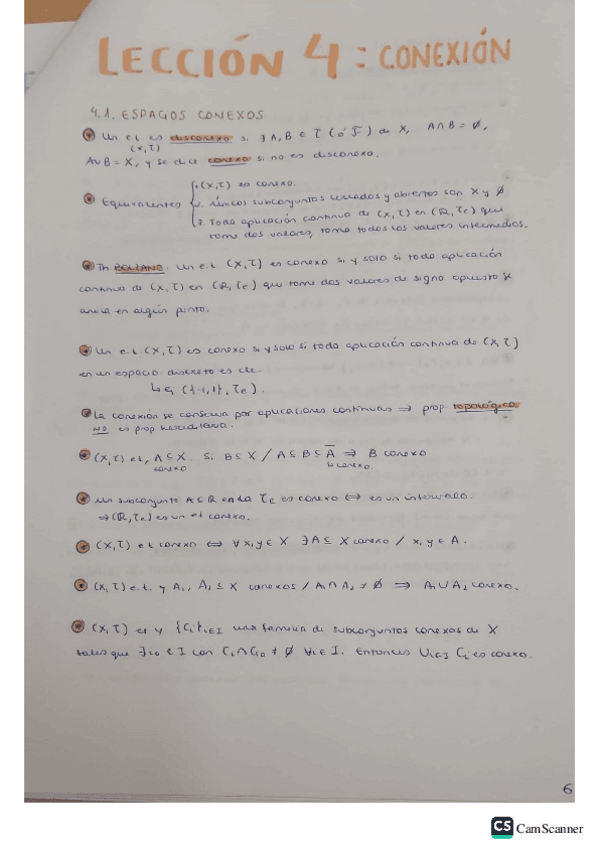 LECCIÓN 4: CONEXIÓN
4.1. ESPACIOS CONEXOS
Un e.t. es disconexo si ∃ A, B ∈ τ (ó F) de X, A∩B = ∅,
(X,τ)
A∪B = X, y se dice conexo si no es disconexo.
Equivalentes
(X,τ) es conexo.
Únicos subconjuntos cerrados y abiertos son X y ∅
Toda aplicación continua de (X,τ) en (R,τe) que
tome dos valores, toma todos los valores intermedios.
Th BOLZANO. Un e.t. (X,τ) es conexo si y solo si toda aplicación
continua de (X,τ) en (R,τe) que tome dos valores de signo opuesto se
anula en algún punto.
Un e.t. (X,τ) es conexo si y solo si toda aplicación continua de (X,τ)
en un espacio discreto es cte.
({-1,1}, τe).
La conexión se conserva por aplicaciones continuas ⇒ prop topológica
NO es prop hereditaria.
(X,τ) et, A⊆X. Si B⊆X / A⊆B⊆A̅ ⇒ B conexo
conexo conexo.
Un subconjunto A⊆R en la τe es conexo ⇔ es un intervalo.
⇒ (R,τe) es un et conexo.
(X,τ) et conexo ⇔ ∀x,y ∈ X ∃A⊆X conexo / x,y ∈ A.
(X,τ) e.t. y A₁, A₂ ⊆ X conexos / A₁∩A₂ ≠ ∅ ⇒ A₁∪A₂ conexo.
(X,τ) et y {Ci}i∈I una familia de subconjuntos conexos de X
tales que ∃ i₀ ∈ I con Ci∩Ci₀ ≠ ∅ ∀i∈I. Entonces ∪i∈I Ci es conexo.
6
CS CamScanner